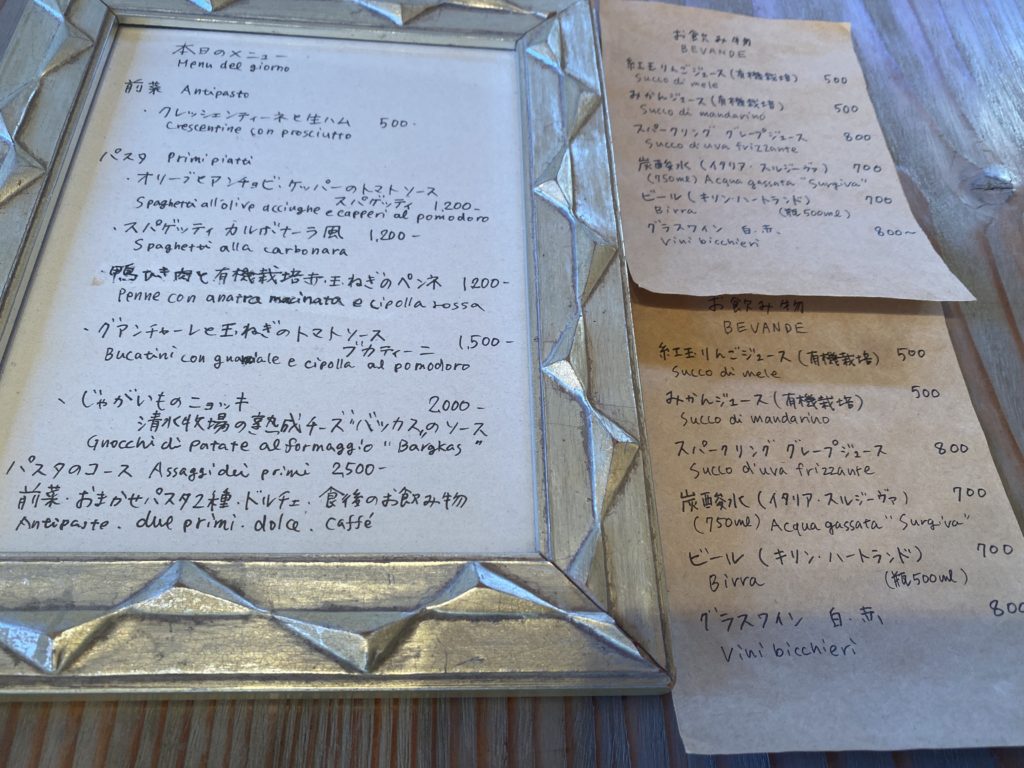 本日のメニュー
Menu del giorno
前菜 Antipasto
・クレッシェンティーネと生ハム 500-
Crescentine con prosciutto
パスタ Primi piatti
・オリーブとアンチョビ・ケッパーのトマトソース
スパゲッティ 1,200-
Spaghetti all'olive acciughe e capperi al pomodoro
・スパゲッティ カルボナーラ風 1,200-
Spaghetti alla carbonara
・鴨ひき肉と有機栽培赤玉ねぎのペンネ 1200-
Penne con anatra macinata e cipolla rossa
・グアンチャーレと玉ねぎのトマトソース
ブカティーニ 1,500-
Bucatini con guanciale e cipolla al pomodoro
、じゃがいものニョッキ 2000-
清水牧場の熟成チーズ"バッカス"のソース
Gnocchi di patate al formaggio "Bargkas"
パスタのコース Assaggi dei primi 2500-
前菜・おまかせパスタ2種・ドルチェ・食後のお飲み物
Antipasto . due primi . dolce . caffé
お飲み物
BEVANDE
紅玉りんごジュース(有機栽培) 500
Succo di mele
みかんジュース(有機栽培) 500
Succo di mandarino
スパークリング グレープジュース 800
Succo d'uva frizzante
炭酸水(イタリア・スルジーヴァ) 700
(750ml) Acqua gassata "Surgiva"
ビール(キリン・ハートランド) 700
Birra (瓶500ml)
グラスワイン 白.赤. 800~
Vini bicchieri
お飲み物
BEVANDE
紅玉りんごジュース(有機栽培) 500
Succo di mele
みかんジュース(有機栽培) 500
Succo di mandarino
スパークリング グレープジュース 800
Succo d'uva frizzante
炭酸水(イタリア・スルジーヴァ) 700
(750ml) Acqua gassata "Surgiva"
ビール(キリン・ハートランド) 700
Birra (瓶500ml)
グラスワイン 白.赤. 800
Vini bicchieri